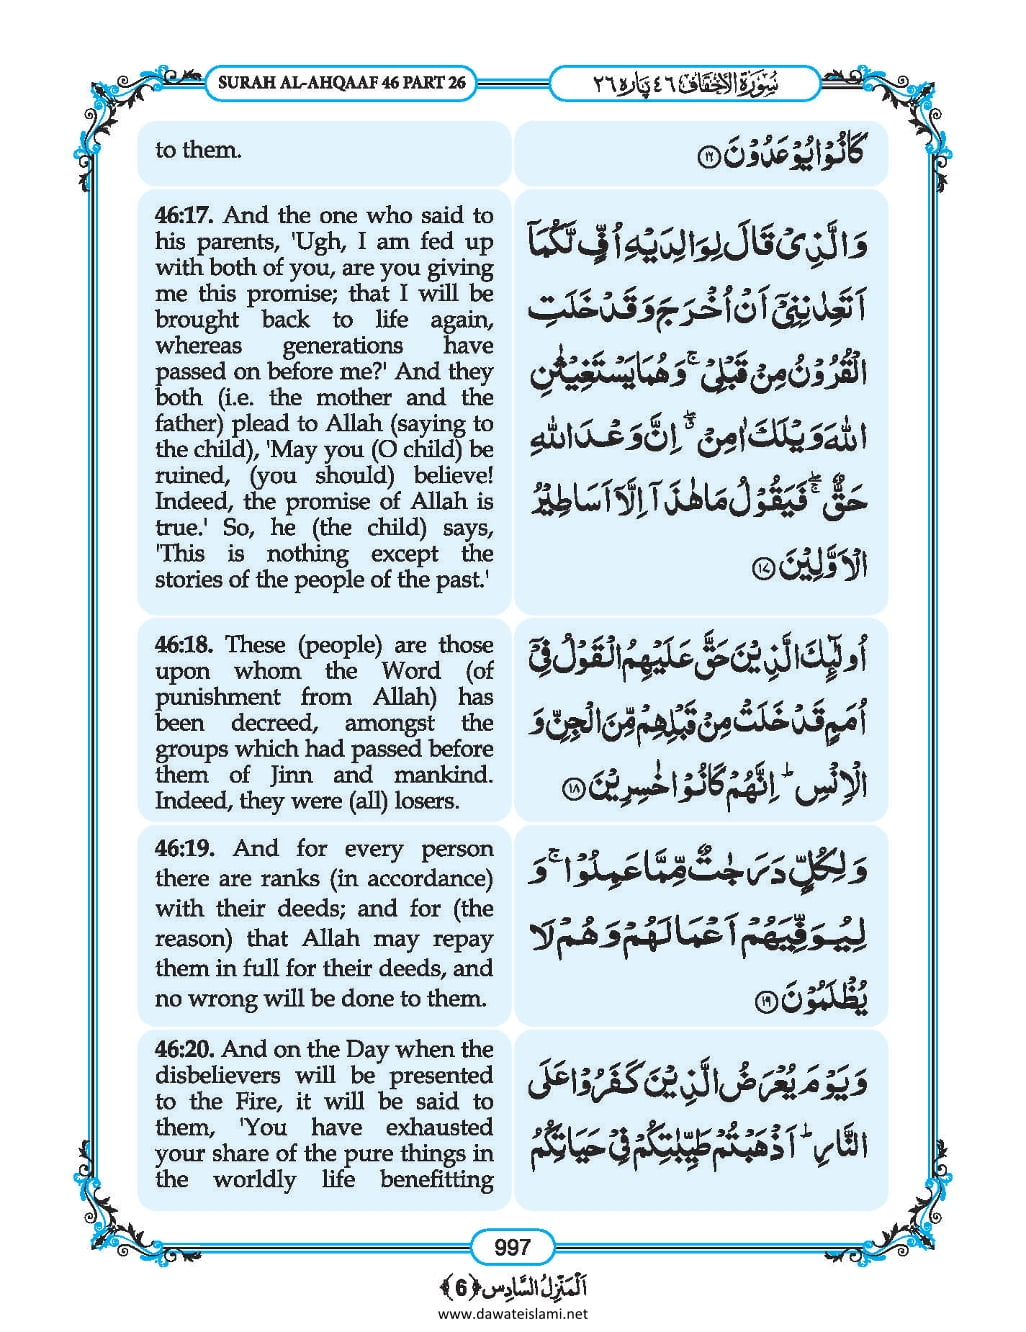 SURAH AL-AHQAAF 46 PART 26
سُوْرَةُ الْاَحْقَاف ٤٦ پارہ ٢٦
to them.
كَانُوْا يُوْعَدُوْنَ ⑯
46:17. And the one who said to
his parents, 'Ugh, I am fed up
with both of you, are you giving
me this promise; that I will be
brought back to life again,
whereas generations have
passed on before me?' And they
both (i.e. the mother and the
father) plead to Allah (saying to
the child), 'May you (O child) be
ruined, (you should) believe!
Indeed, the promise of Allah is
true.' So, he (the child) says,
'This is nothing except the
stories of the people of the past.'
وَالَّذِيْ قَالَ لِوَالِدَيْهِ اُفٍّ لَّكُمَاۤ
اَتَعِدٰنِنِيْۤ اَنْ اُخْرَجَ وَقَدْ خَلَتِ
الْقُرُوْنُ مِنْ قَبْلِيْ ۚ وَهُمَا يَسْتَغِيْثٰنِ
اللهَ وَيْلَكَ اٰمِنْ ۖ اِنَّ وَعْدَ اللهِ
حَقٌّ ۚۖ فَيَقُوْلُ مَا هٰذَاۤ اِلَّاۤ اَسَاطِيْرُ
الْاَوَّلِيْنَ ⑰
46:18. These (people) are those
upon whom the Word (of
punishment from Allah) has
been decreed, amongst the
groups which had passed before
them of Jinn and mankind.
Indeed, they were (all) losers.
اُولٰٓئِكَ الَّذِيْنَ حَقَّ عَلَيْهِمُ الْقَوْلُ فِيْۤ
اُمَمٍ قَدْ خَلَتْ مِنْ قَبْلِهِمْ مِّنَ الْجِنِّ وَ
الْاِنْسِ ؕ اِنَّهُمْ كَانُوْا خٰسِرِيْنَ ⑱
46:19. And for every person
there are ranks (in accordance)
with their deeds; and for (the
reason) that Allah may repay
them in full for their deeds, and
no wrong will be done to them.
وَلِكُلٍّ دَرَجٰتٌ مِّمَّا عَمِلُوْا ۚ وَ
لِيُوَفِّيَهُمْ اَعْمَالَهُمْ وَهُمْ لَا
يُظْلَمُوْنَ ⑲
46:20. And on the Day when the
disbelievers will be presented
to the Fire, it will be said to
them, 'You have exhausted
your share of the pure things in
the worldly life benefitting
وَيَوْمَ يُعْرَضُ الَّذِيْنَ كَفَرُوْا عَلَى
النَّارِ ؕ اَذْهَبْتُمْ طَيِّبٰتِكُمْ فِيْ حَيَاتِكُمُ
997
اَلْمَنْزِلُ السَّادِس ﴿6﴾
www.dawateislami.net